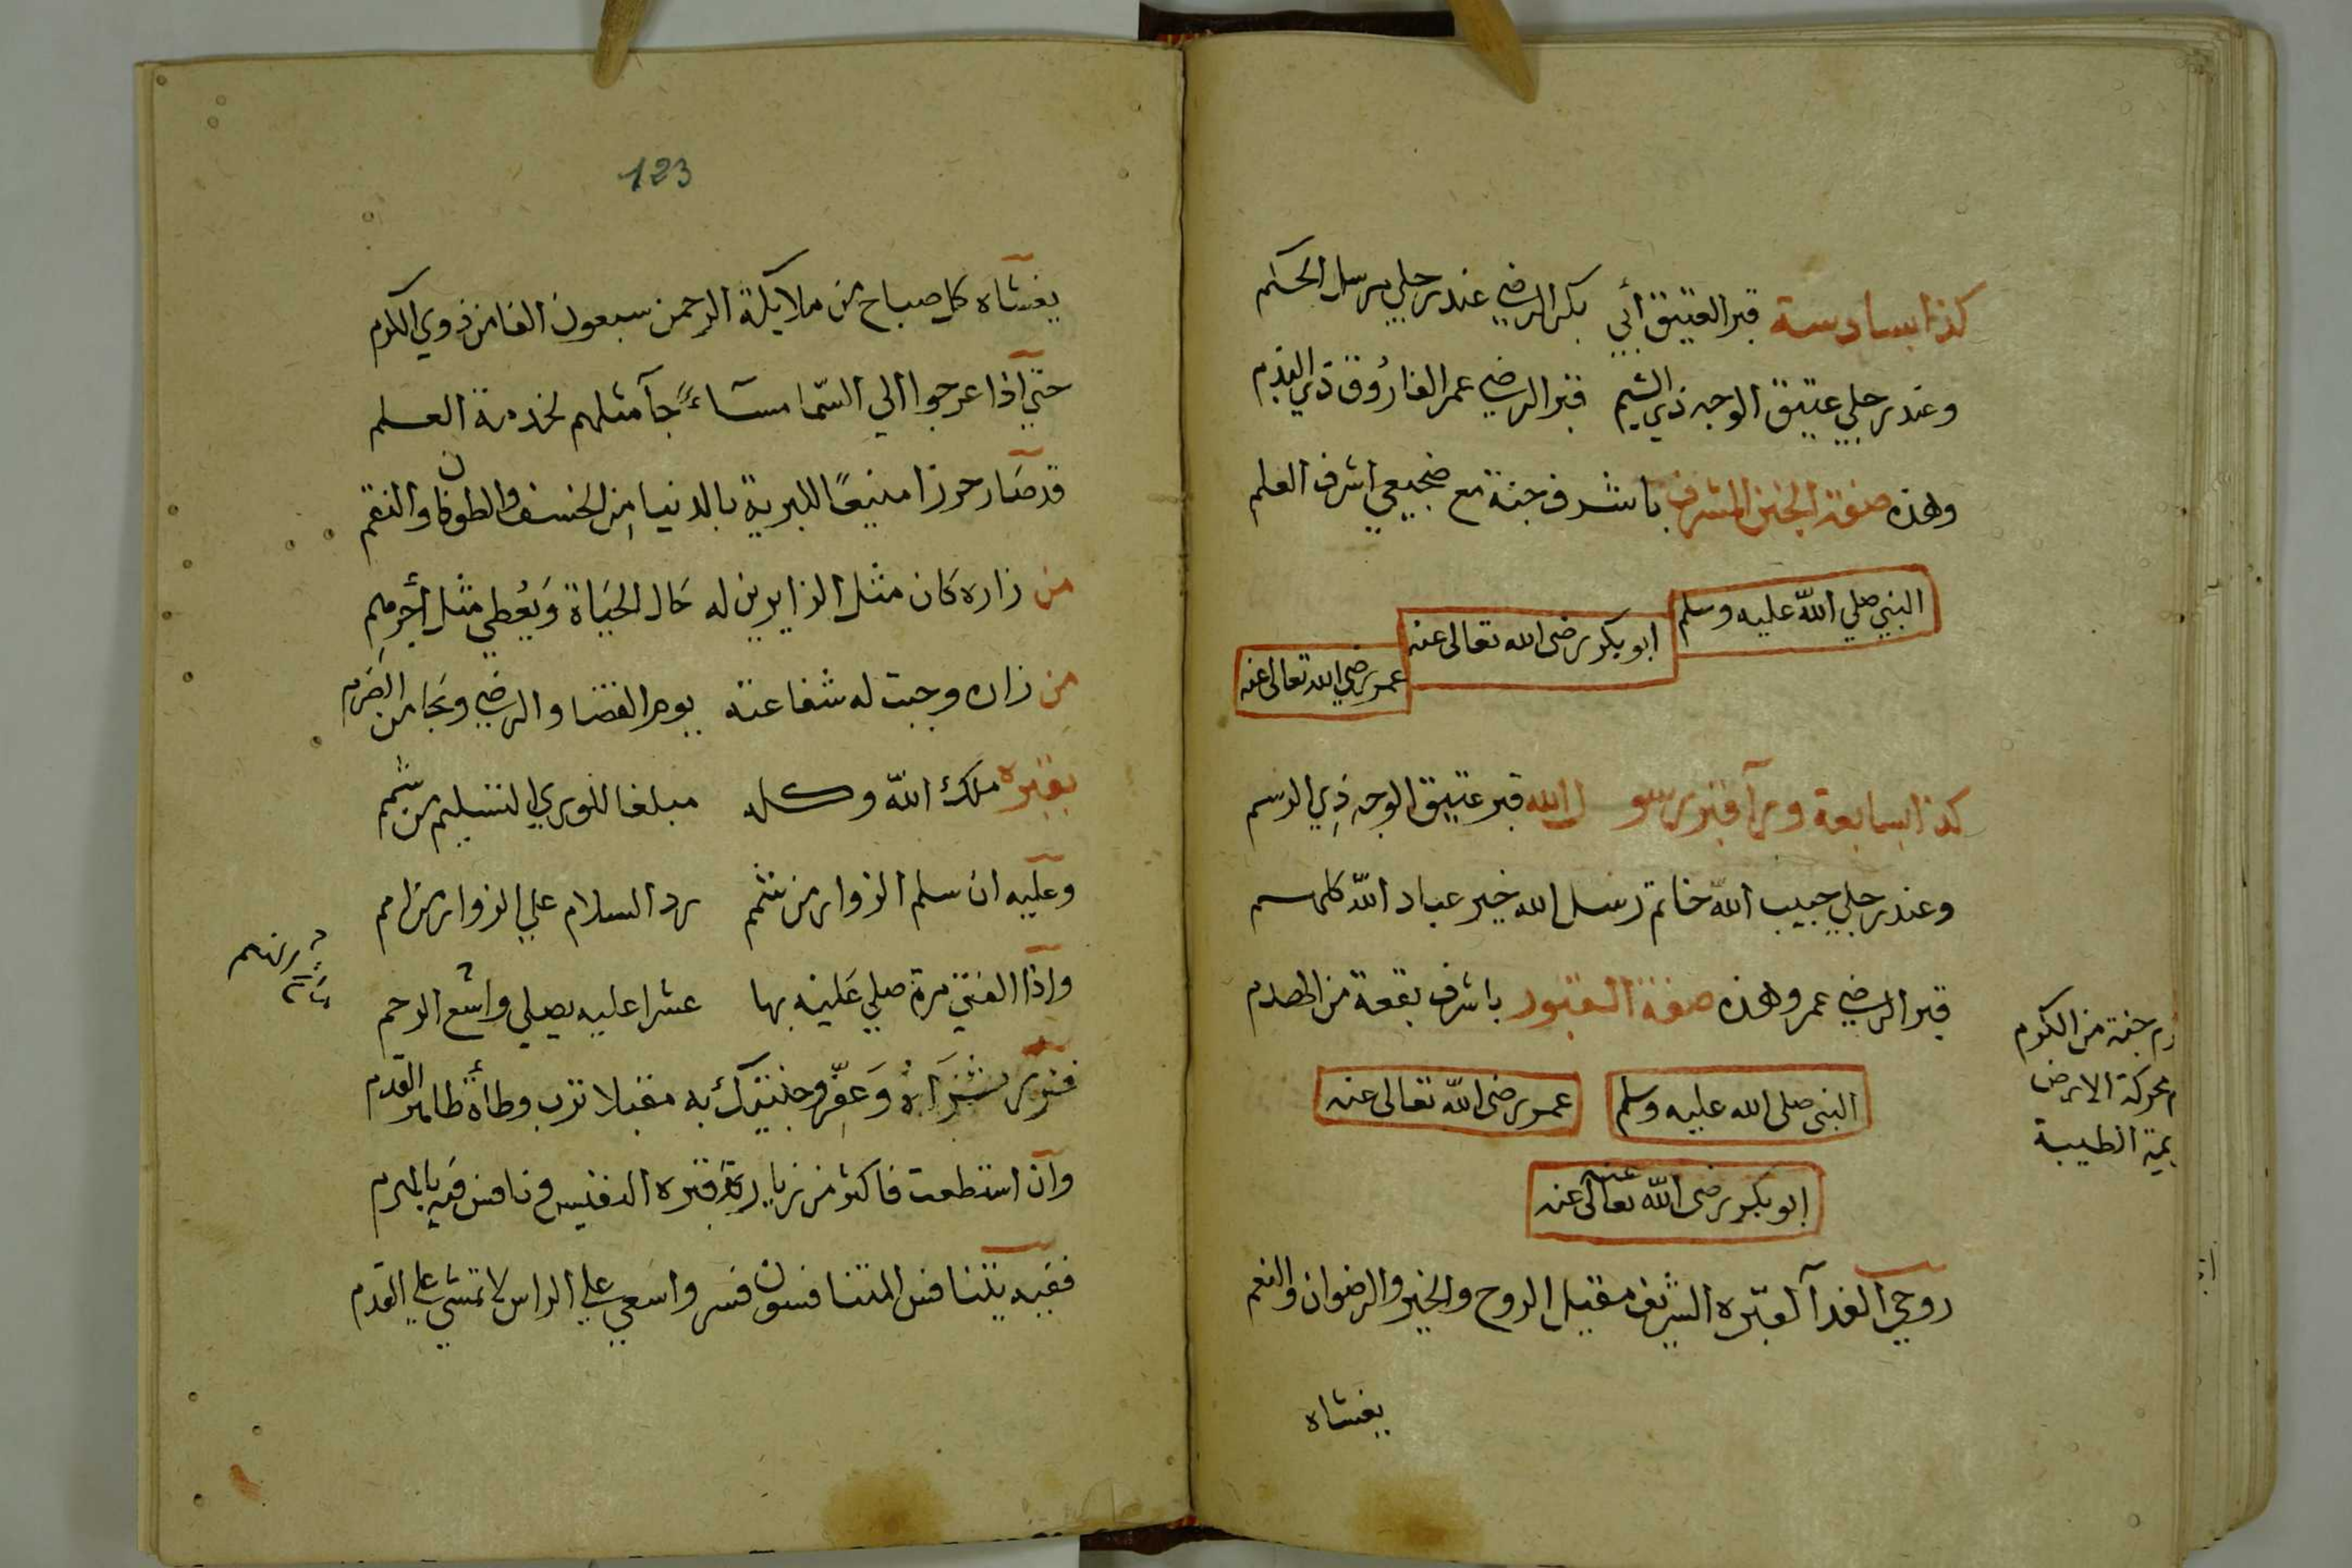 كذا سادسة قبر العتيق أبي بكر الرضي عند رجلي مرسل الحكم
وعند رجلي عتيق الوجه ذي الشيم قبر الرضي عمر الفاروق ذي القدم
وهذه صفة المشرف باشرف جنة مع ضجيعي اشرف العلم
النبي صلي الله عليه وسلم
ابو بكر رضى الله تعالى عنه
عمر رضي الله تعالى عنه
كذا سابعة ورآ قبر رسول الله قبر عتيق الوجه ذي الوسم
وعند رجلي حبيب الله خاتم رسل الله خير عباد الله كلهم
قبر الرضي عمر وهذه صفة القبور باشرف بقعة من
جنة من الكوم
محركة الارض
الطيبة
النبى صلى الله عليه وسلم
عمر رضى الله تعالى عنه
ابو بكر رضى الله تعالى عنه
روحي الفدآ لقبره الشريف مقيل الروح والخير والرضوان والنعم
يغشاه
123
يغشاه كل صباح من ملايكة الرحمن سبعون الفا من ذوي الكرم
حتي اذا عرجوا الي السما مسآءً جآ مثلهم لخدمة العلم
قد صار حرزا منيعًا للبرية بالدنيا من الخسف والطوفان والنقم
من زاره كان مثل الزايرين له حال الحياة ويعطي مثل أجرهم
من زاره وجبت له شفاعته يوم القضا والرضي ونجا من الضرم
بقبره ملك الله وكله مبلغا للوري التسليم من شمم
وعليه ان سلم الزوار من رد السلام علي الزوار من امم
واذا الفتي مرة صلي عليه بها عشرا عليه يصلي واسع الرحم
فزر ثراه وعفر وجنتيك به مقبلا ترب وطأة القدم
وان استطعت فاكثر من زيارة قبره النفيس ونافس فيه بالهرم
ففيه يتنافس المتنافسون فسر واسعي علي الراس لا تمشي علي القدم